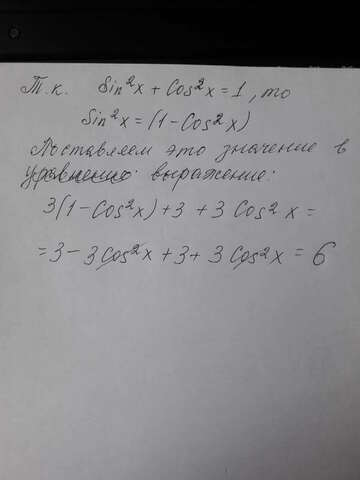 Т.к. Sin²x + Cos²x = 1, то
Sin²x = (1 - Cos²x)
Поставляем это значение в
уравнение: выражение:
3(1 - Cos²x) + 3 + 3 Cos²x =
= 3 - 3 Cos²x + 3 + 3 Cos²x = 6